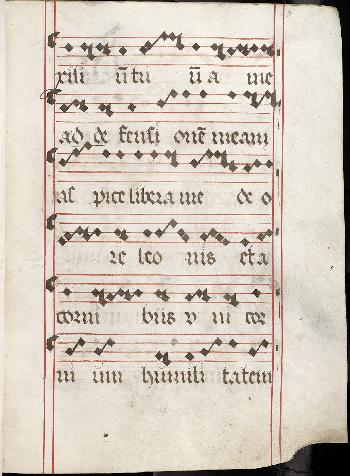 xilii ūtu ū a me
ad de fensi onē meam
as pice libera me de o
re leo nis et a
corni biis v ni cor
ni um humili tatem